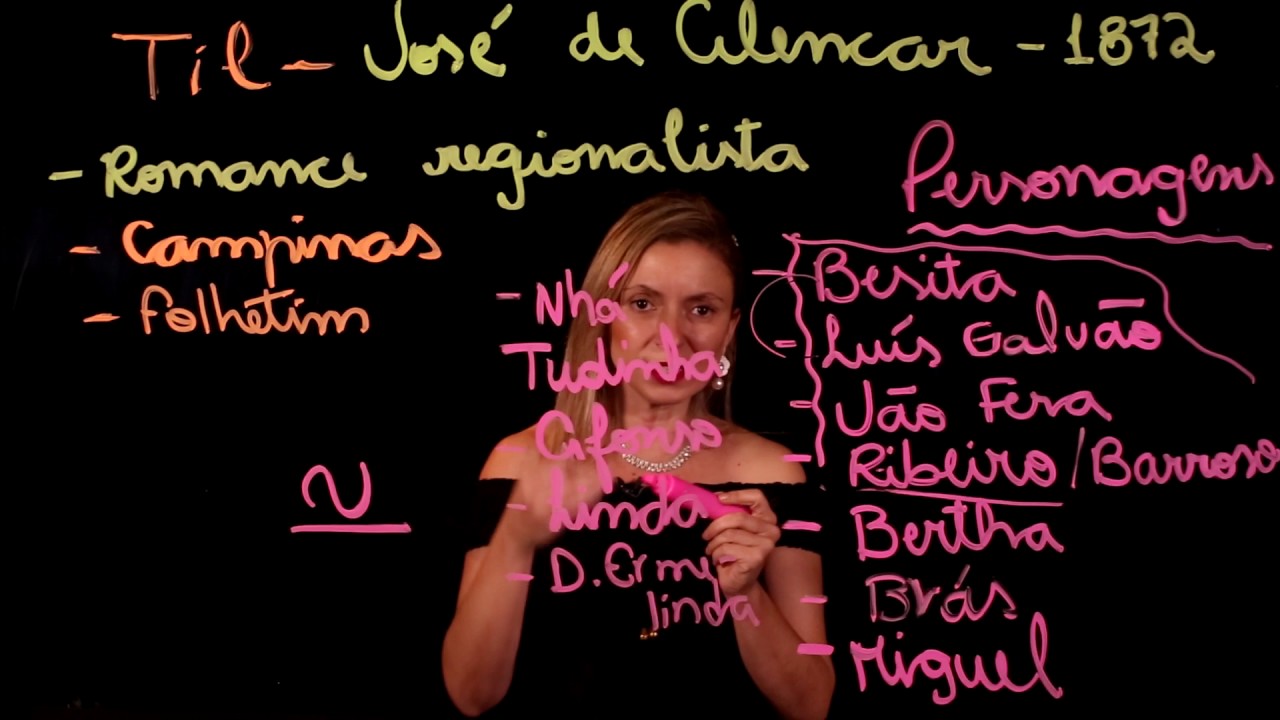 Til - José de Alencar - 1872
- Romance regionalista
- Campinas
- Folhetim
~
Personagens
- Besita
- Luís Galvão
- Jão Fera
- Ribeiro / Barroso
- Bertha
- Brás
- Miguel
- Nhá
Tudinha
- Afonso
- Linda
- D. Erme
linda